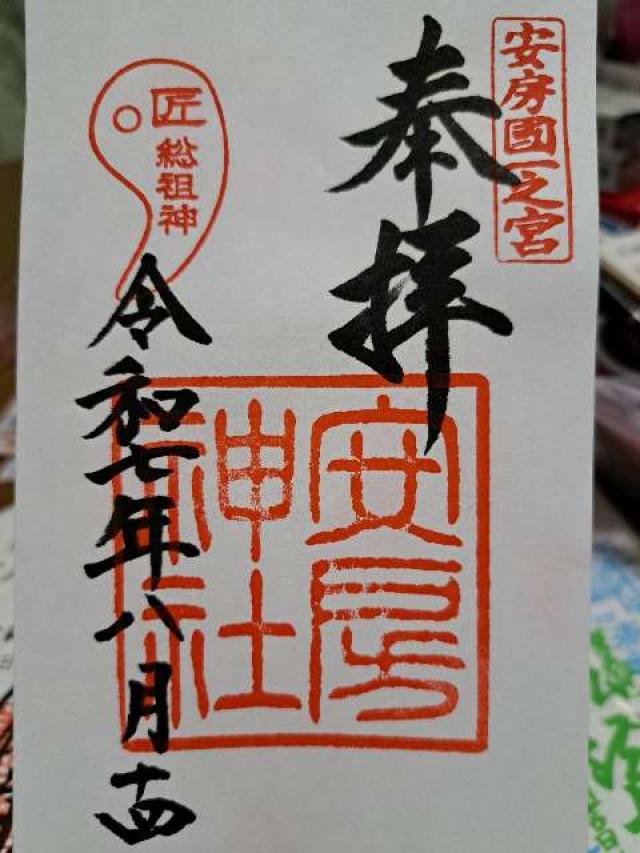 安房國一之宮
奉拝
安房
神社
匠
総祖神
令和七年八月十四